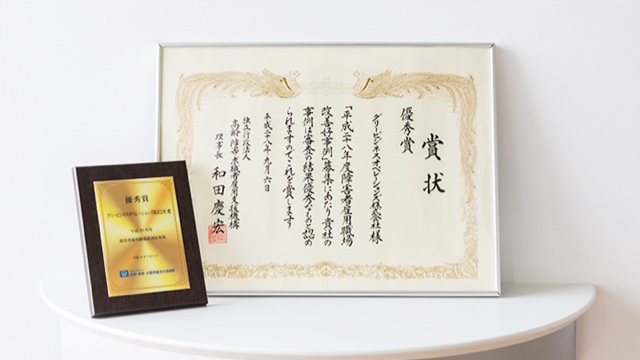 賞状
優秀賞
グリービジネスオペレーションズ株式会社様
「平成二十八年度障害者雇用職場
改善好事例」募集にあたり貴社の
事例は審査の結果優秀なものと認め
られますのでこれを賞します
平成二十八年九月六日
独立行政法人
高齢・障害・求職者雇用支援機構
理事長 和田慶宏
優秀賞
グリービジネスオペレーションズ株式会社 殿